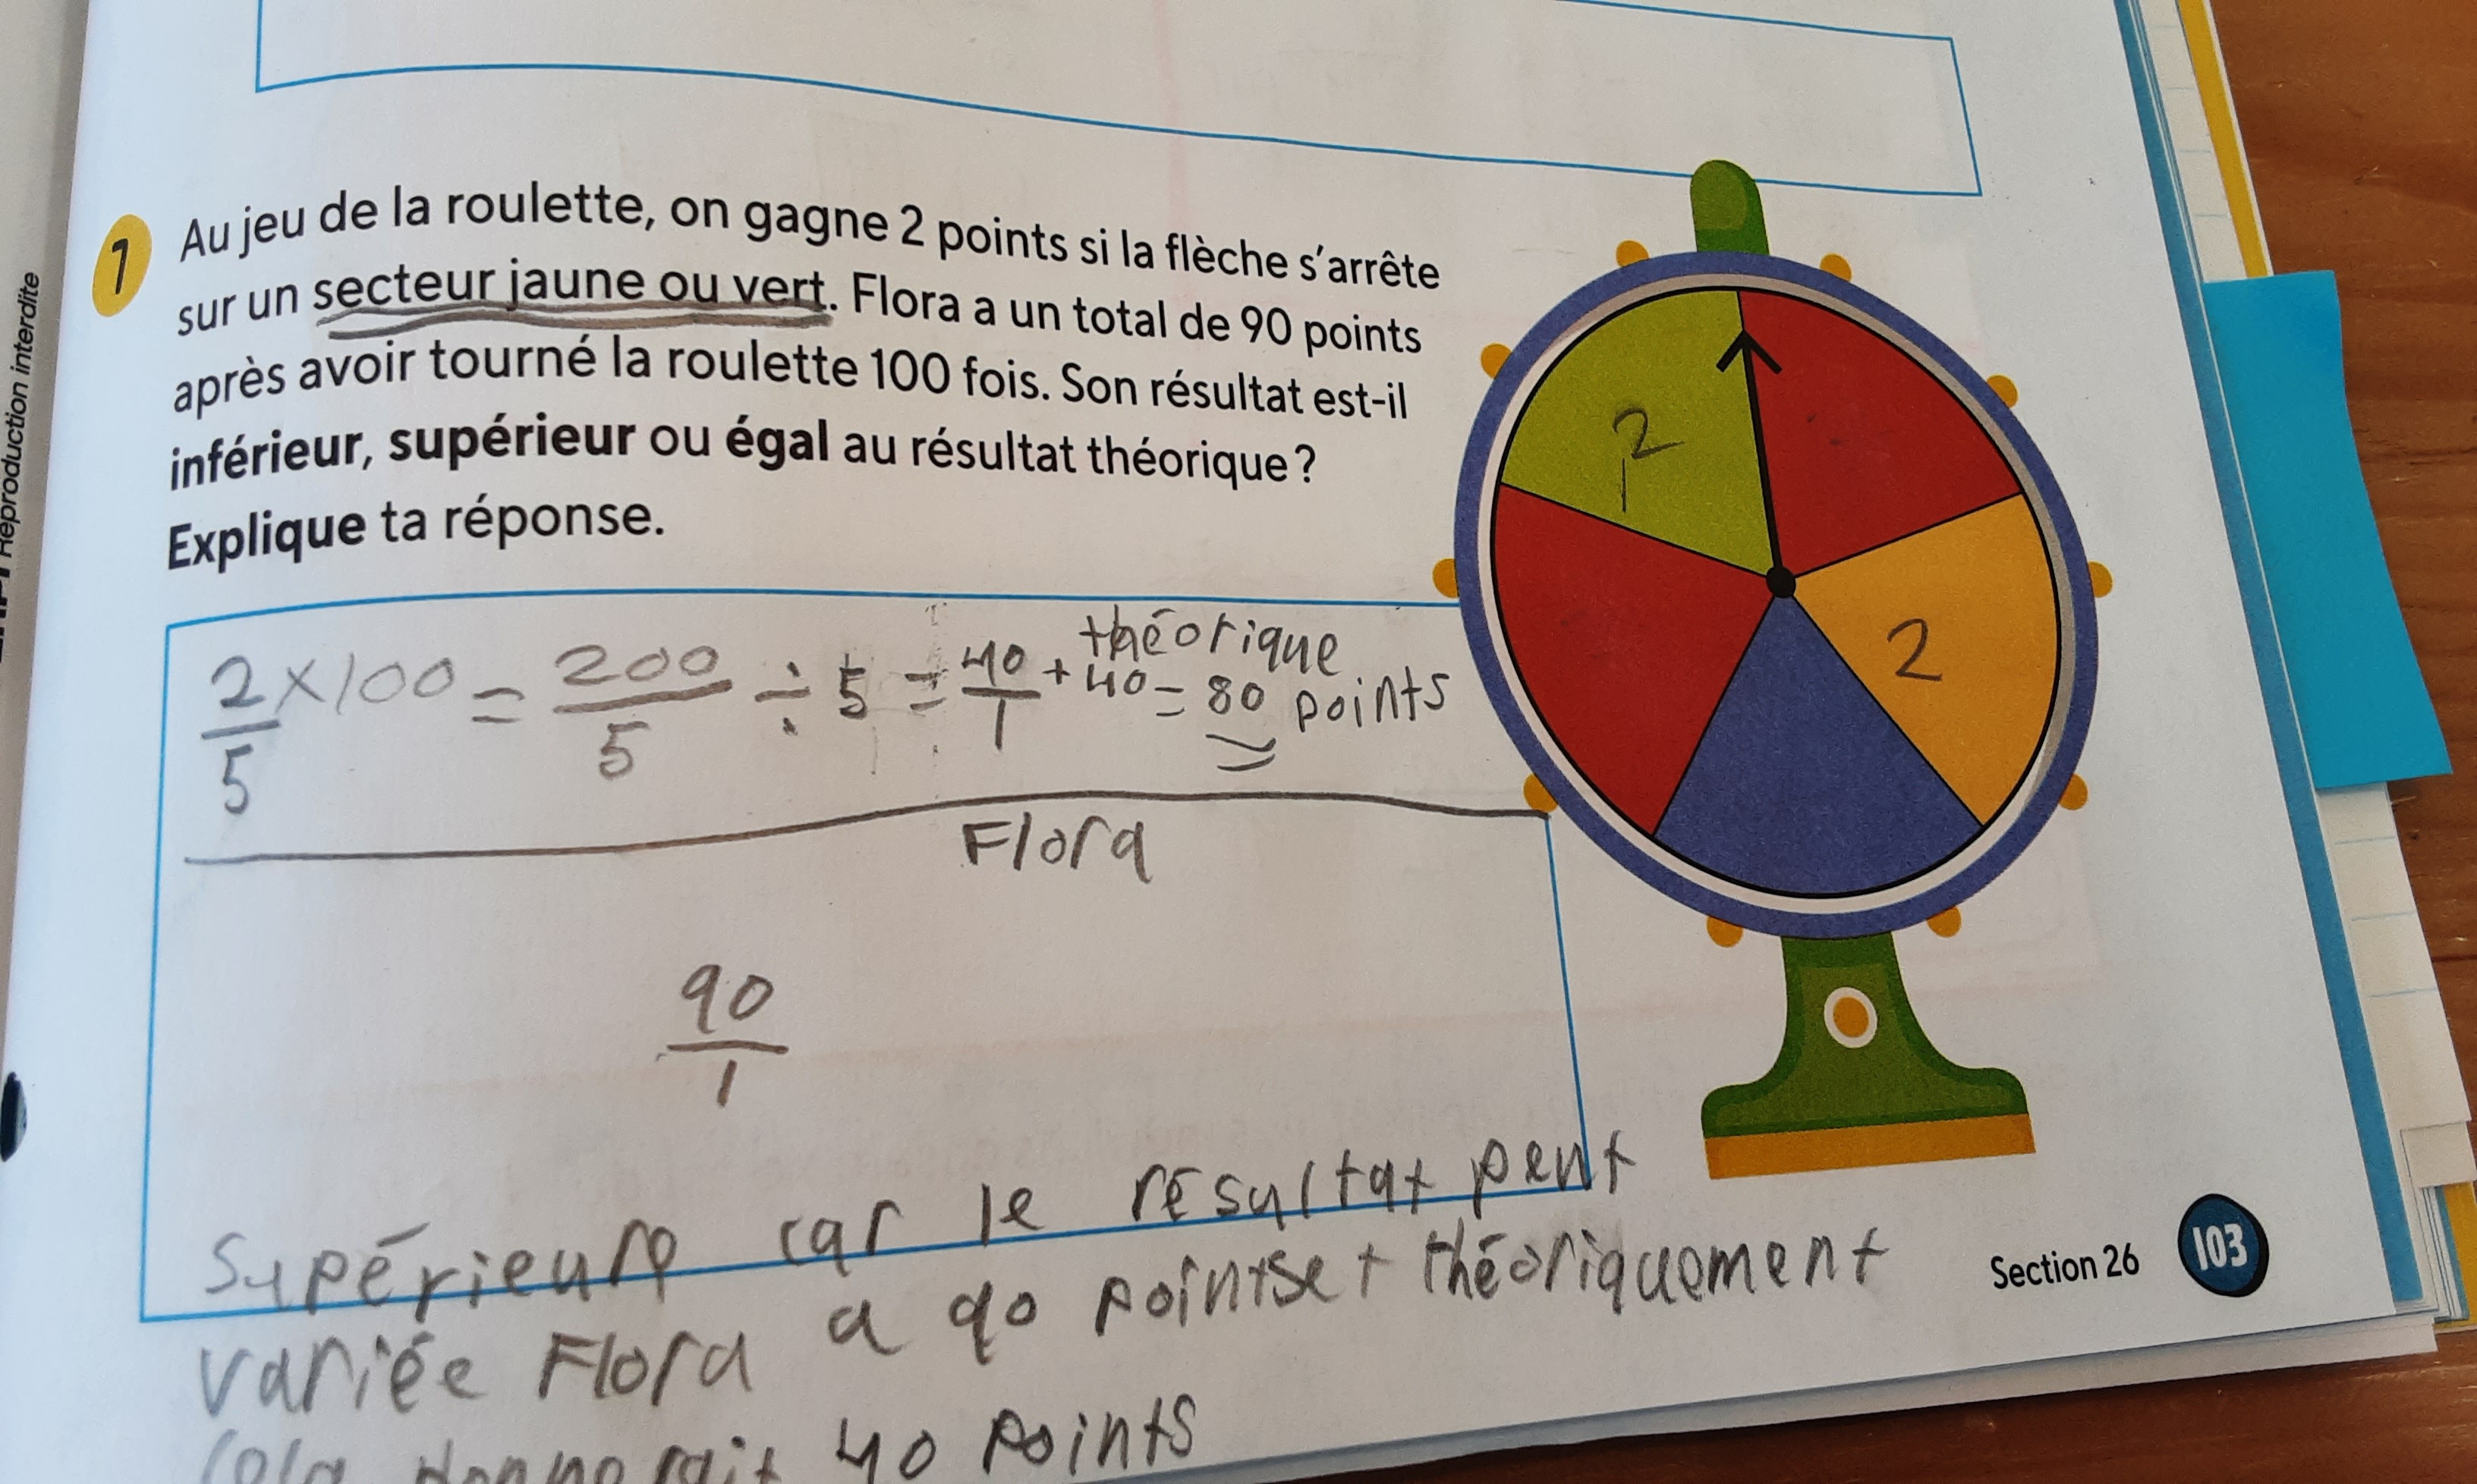 Reproduction interdite
1
Au jeu de la roulette, on gagne 2 points si la flèche s'arrête
sur un secteur jaune ou vert. Flora a un total de 90 points
après avoir tourné la roulette 100 fois. Son résultat est-il
inférieur, supérieur ou égal au résultat théorique ?
Explique ta réponse.
2
2
théorique
2/5 × 100 = 200/5 ÷ 5 = 40/1 + 40 = 80 points
Flora
90/1
Supérieure car le résultat peut
variée Flora a 90 points et théoriquement
40 points
Section 26 103